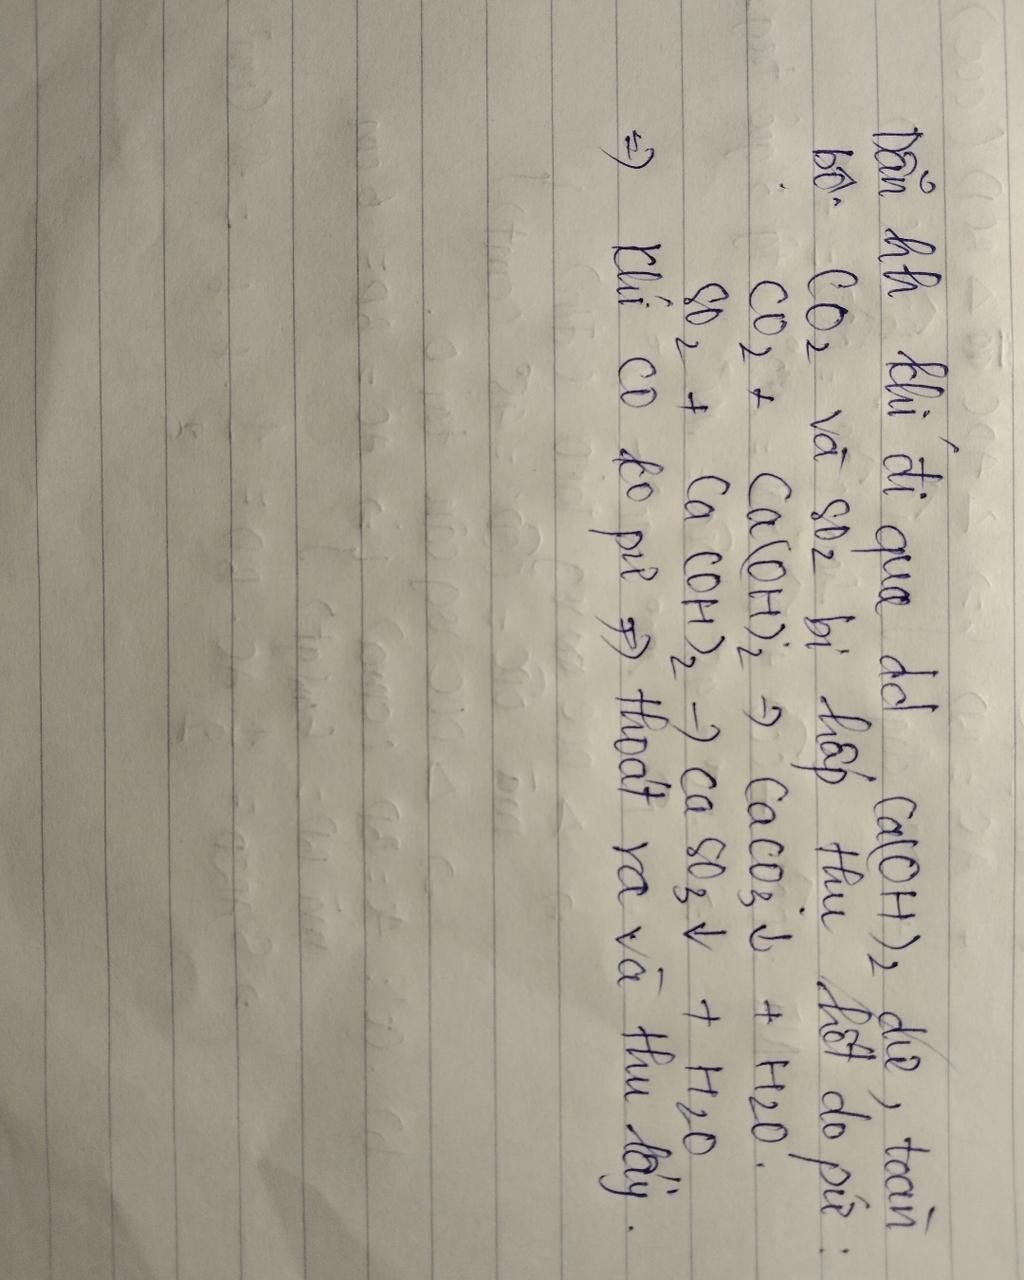 Dẫn hh khí đi qua dd Ca(OH)2 dư, toàn
bộ CO2 và SO2 bị hấp thu hết do pứ:
CO2 + Ca(OH)2 → CaCO3↓ + H2O.
SO2 + Ca(OH)2 → CaSO3↓ + H2O
=> Khí CO ko pứ => thoát ra và thu lấy.